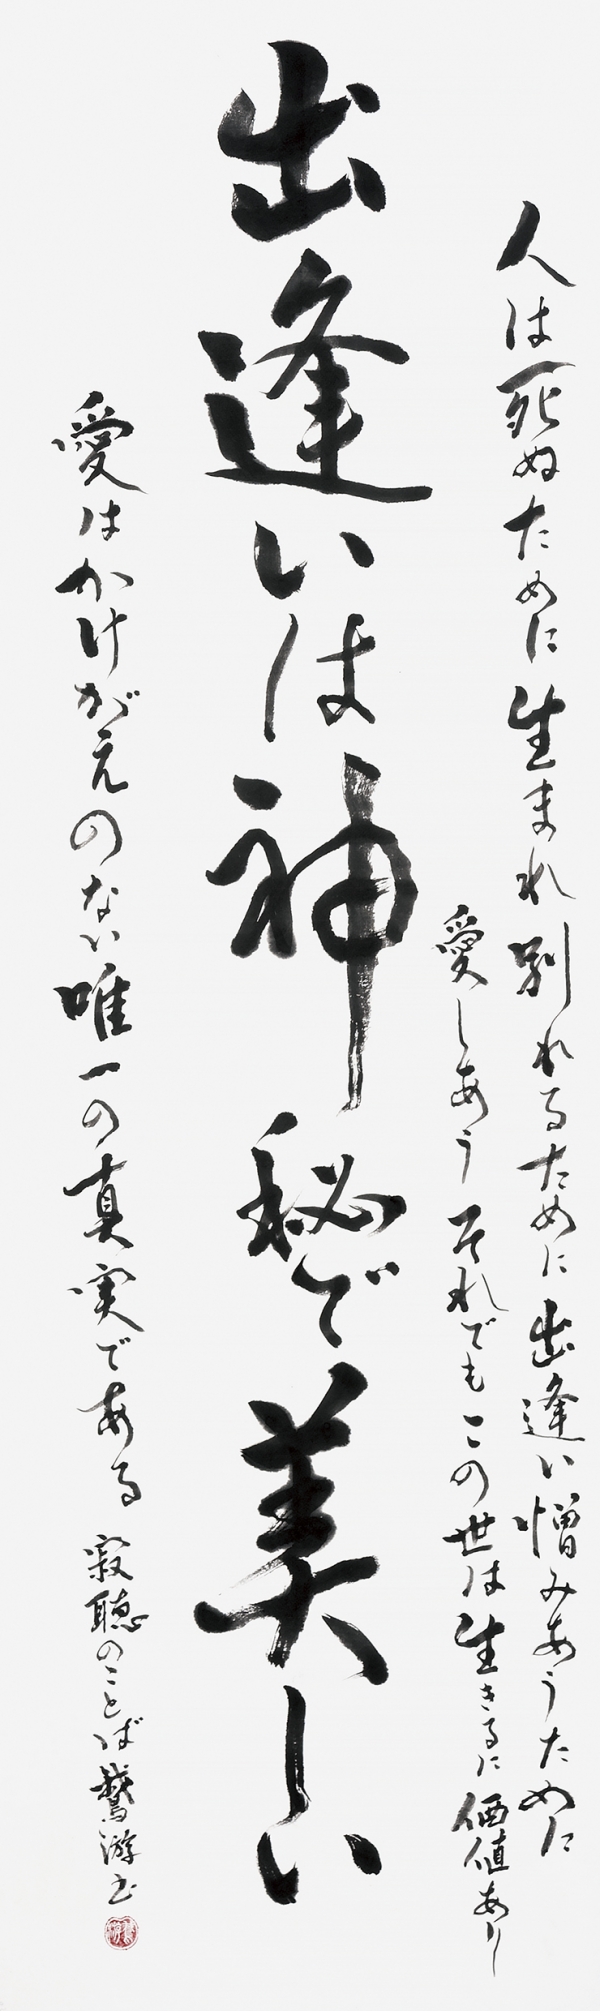 人は死ぬために生まれ別れるために出逢い憎みあうために
愛しあうそれでもこの世は生きるに価値あり
出逢いは神秘で美しい
愛はかけがえのない唯一の真実である
寂聴のことば鵞游書